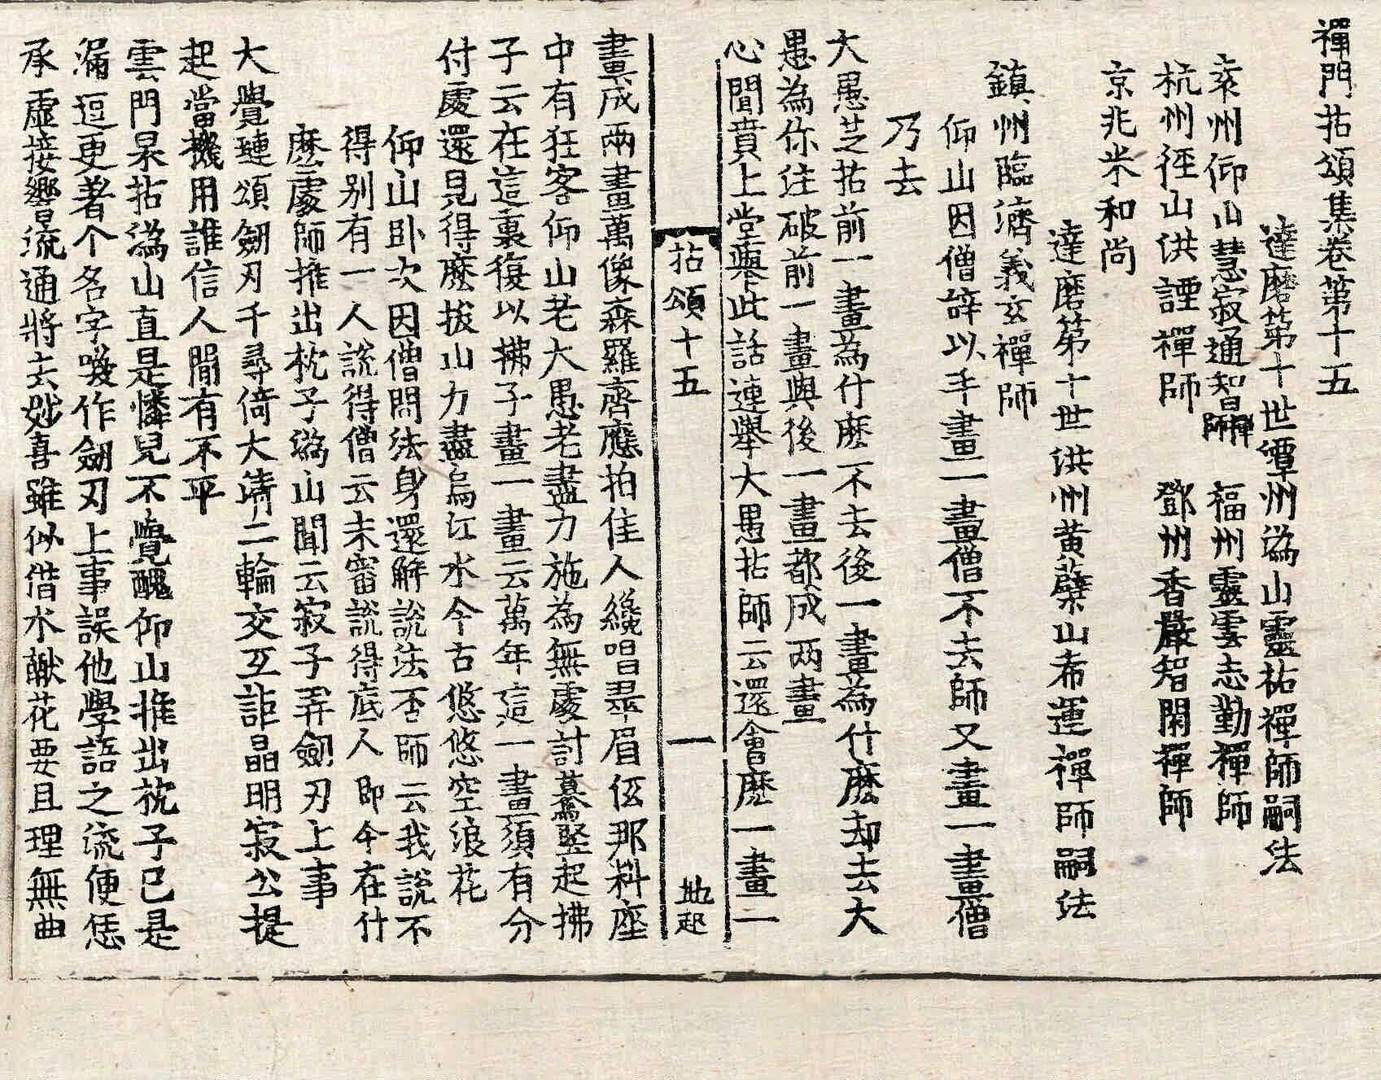 禪門拈頌集卷第十五
達磨第十世潭州潙山靈祐禪師嗣法
袁州仰山慧寂通智禪師 福州靈雲志勤禪師
杭州徑山洪諲禪師 鄧州香嚴智閑禪師
京兆米和尚
達磨第十世洪州黄蘗山希運禪師嗣法
鎮州臨濟義玄禪師
仰山因僧辝以手畫一畫僧不去師又畫一畫僧
乃去
大愚芝拈前一畫為什麽不去後一畫為什麽却去大
愚為你注破前一畫與後一畫都成两畫
心聞賁上堂擧此話連舉大愚拈師云還會麽一畫二
拈頌十五 一 地起
畫成兩畫萬像森羅齊應拍佳人纔唱翠眉低那料座
中有狂客仰山老大愚老盡力施為無處討驀竪起拂
子云在這裏復以拂子畫一畫云萬年這一畫須有分
付處還見得麽拔山力盡烏江水今古悠悠空浪花
仰山卧次因僧問法身還解說法否師云我說不
得别有一人說得僧云未審說得底人即今在什
麽處師推出枕子潙山聞云寂子弄劒刃上事
大覺璉頌劒刃千尋倚大淸二輪交互詎晶明寂公提
起當機用誰信人閒有不平
雲門杲拈潙山直是憐兒不覺醜仰山推出枕子已是
漏逗更著个名字喚作劒刃上事誤他學語之流便恁
承虛接響流通將去妙喜雖似借水獻花要且理無曲